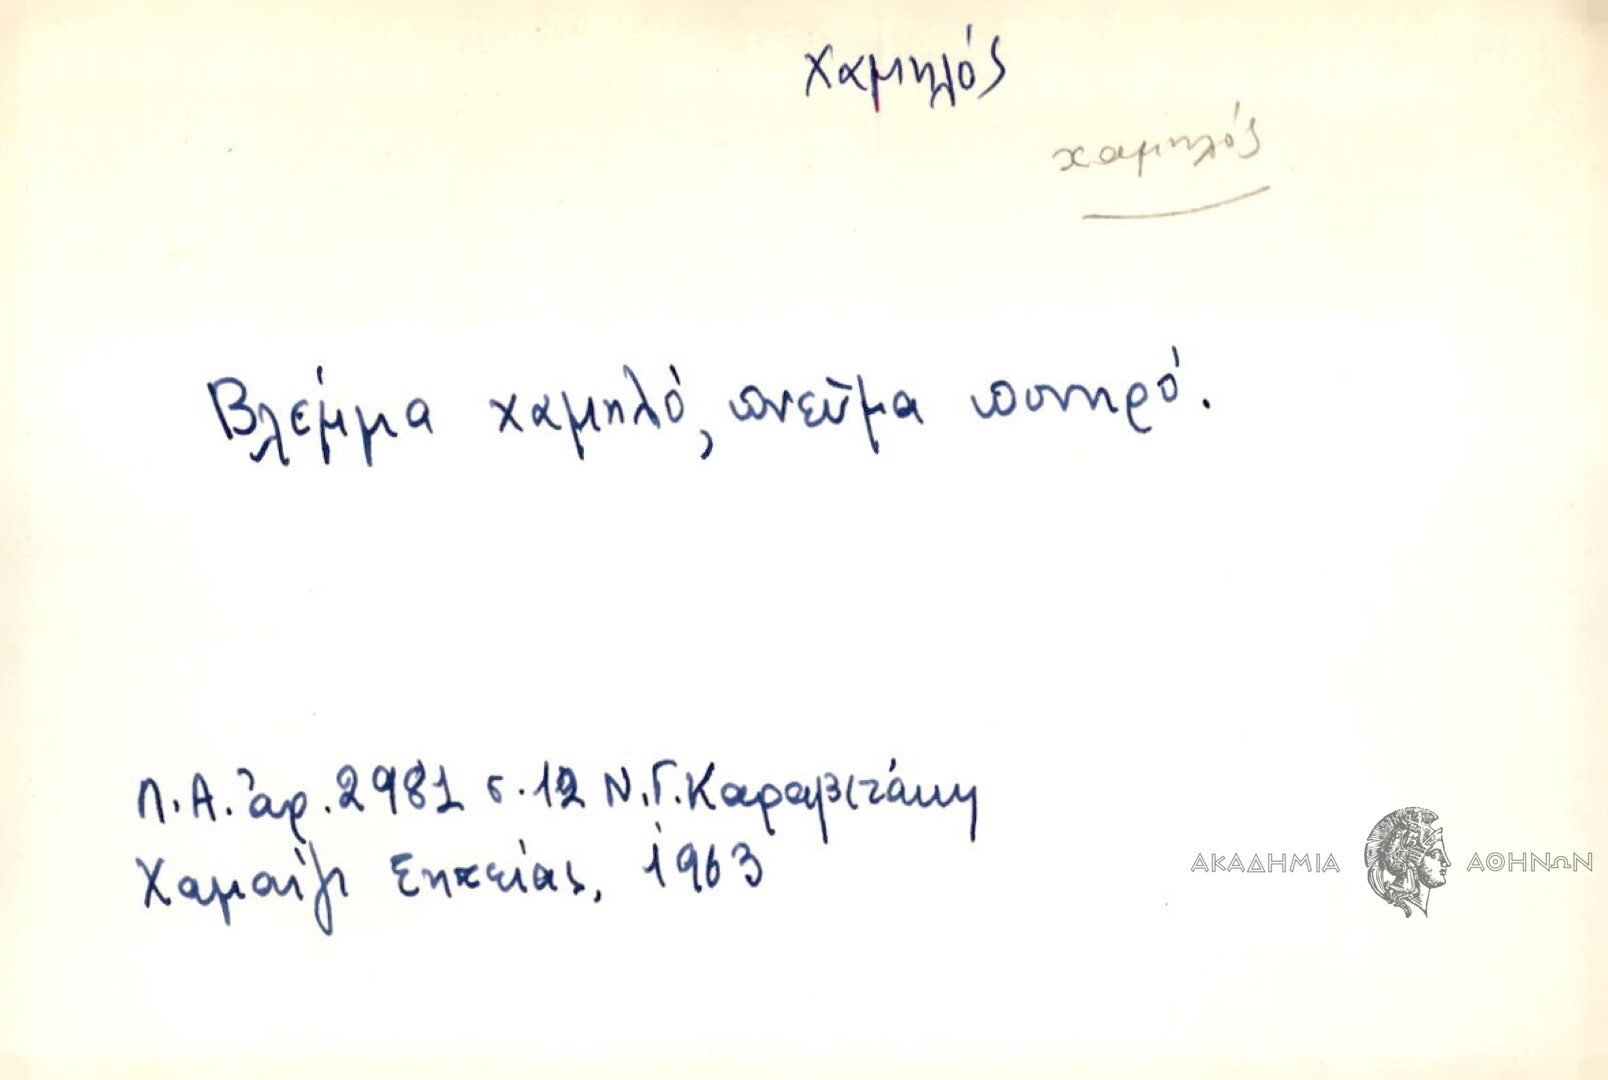 χαμηλός
χαμηλός
Βλέμμα χαμηλό, πνεῦμα πονηρό.
Λ.Α. ἀρ. 2981 σ. 12 Ν. Γ. Καραβιτάκη
Χαμαίζι Σητείας, 1963
ΑΚΑΔΗΜΙΑ ΑΘΗΝΩΝ